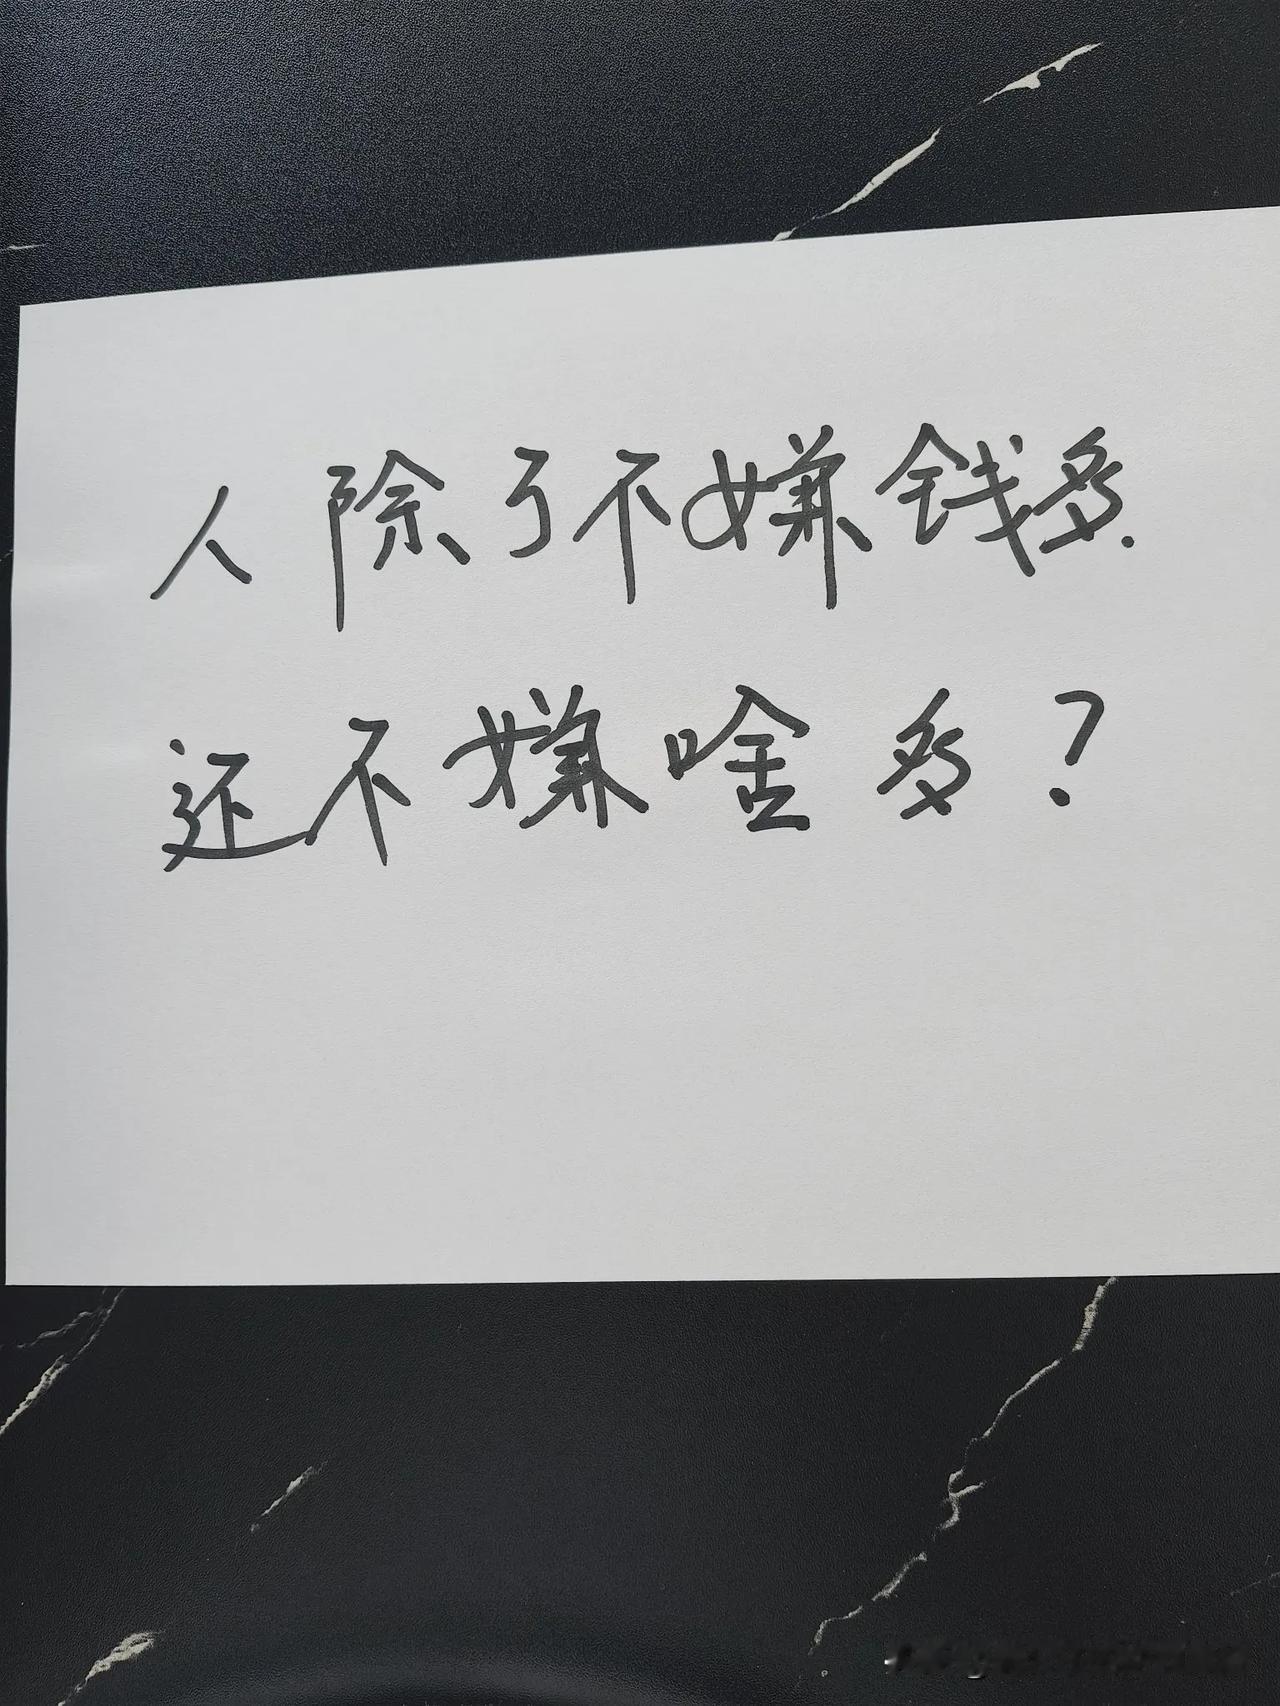 人除了不嫌钱多.
还不嫌啥多?